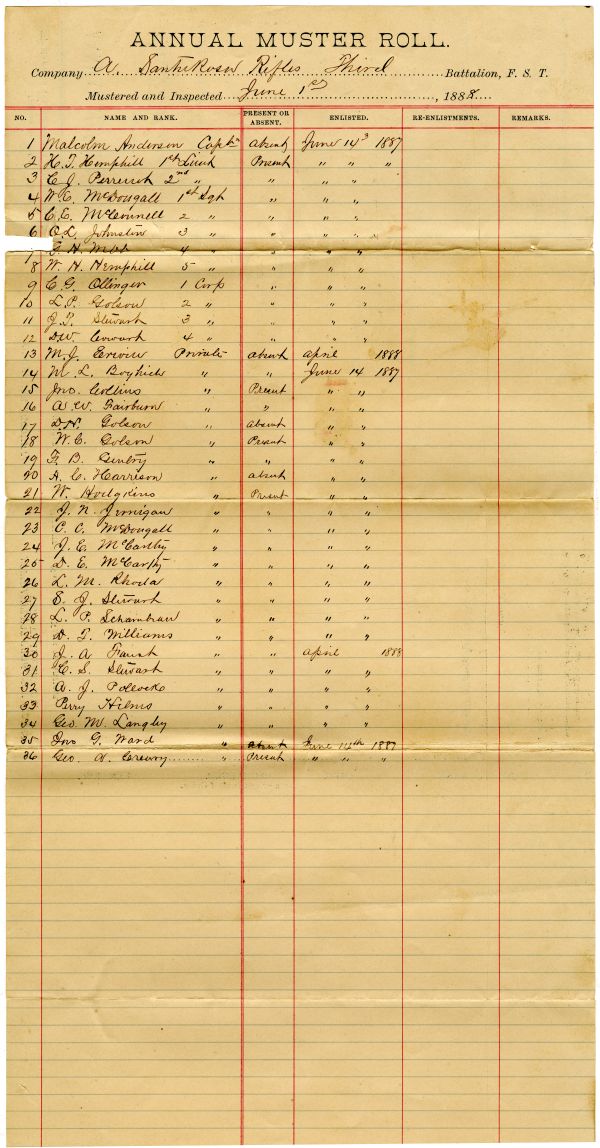 ANNUAL MUSTER ROLL.
Company A. Santa Rosa Rifles Third Battalion, F. S. T.
Mustered and Inspected June 1st, 1888
NO. NAME AND RANK. PRESENT OR ABSENT. ENLISTED. RE-ENLISTMENTS. REMARKS.
1 Malcolm Anderson Capt absent June 14 1887
2 H. T. Hemphill 1st Lieut Present " " "
3 C. J. 2nd " " " "
4 W. E. McDougall 1st Sgt " " "
5 C. E. McConnell 2 " " " "
6 O. L. Johnston 3 " " " "
7 H. Webb 4 " " " "
8 W. H. Hemphill 5 " " " "
9 C. G. Ollinger 1 Corp " " "
10 L. P. Golson 2 " " " "
11 J. T. Stewart 3 " " " "
12 D. W. 4 " " " "
13 M. J. Private absent april 1888
14 M. L. " " June 14 1887
15 Jno. Collins " Present " "
16 A. W. Fairburn " " " "
17 D. N. Golson " absent " "
18 W. C. Golson " Present " "
19 F. B. Gentry " " " "
20 A. C. Harrison " absent " "
21 W. Hodgkins " Present " "
22 J. N. Jernigan " " " "
23 C. C. McDougall " " " "
24 J. E. McCarthy " " " "
25 D. E. McCarthy " " " "
26 L. M. Rhoda " " " "
27 S. J. Stewart " " " "
28 L. P. " " " "
29 D. T. Williams " " " "
30 J. A. Faust " " april 1888
31 C. S. Stewart " " " "
32 A. J. " " " "
33 Perry Helms " " " "
34 Geo. M. Langley " " " "
35 Jno G. Ward " absent June 14th 1887
36 Geo. A. Creary " Present " " "